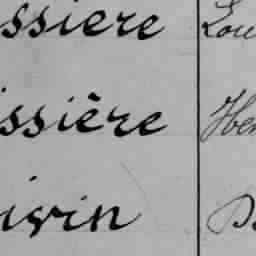 ssiere Lou
ssière Hen
ivin